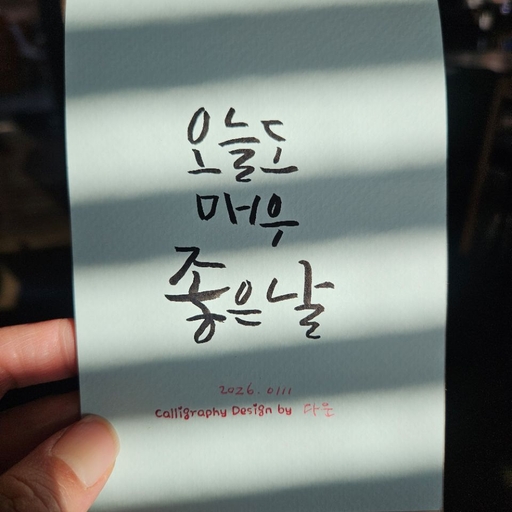 오늘도
매우
좋은날
2026. 0111
Calligraphy Design by 다운